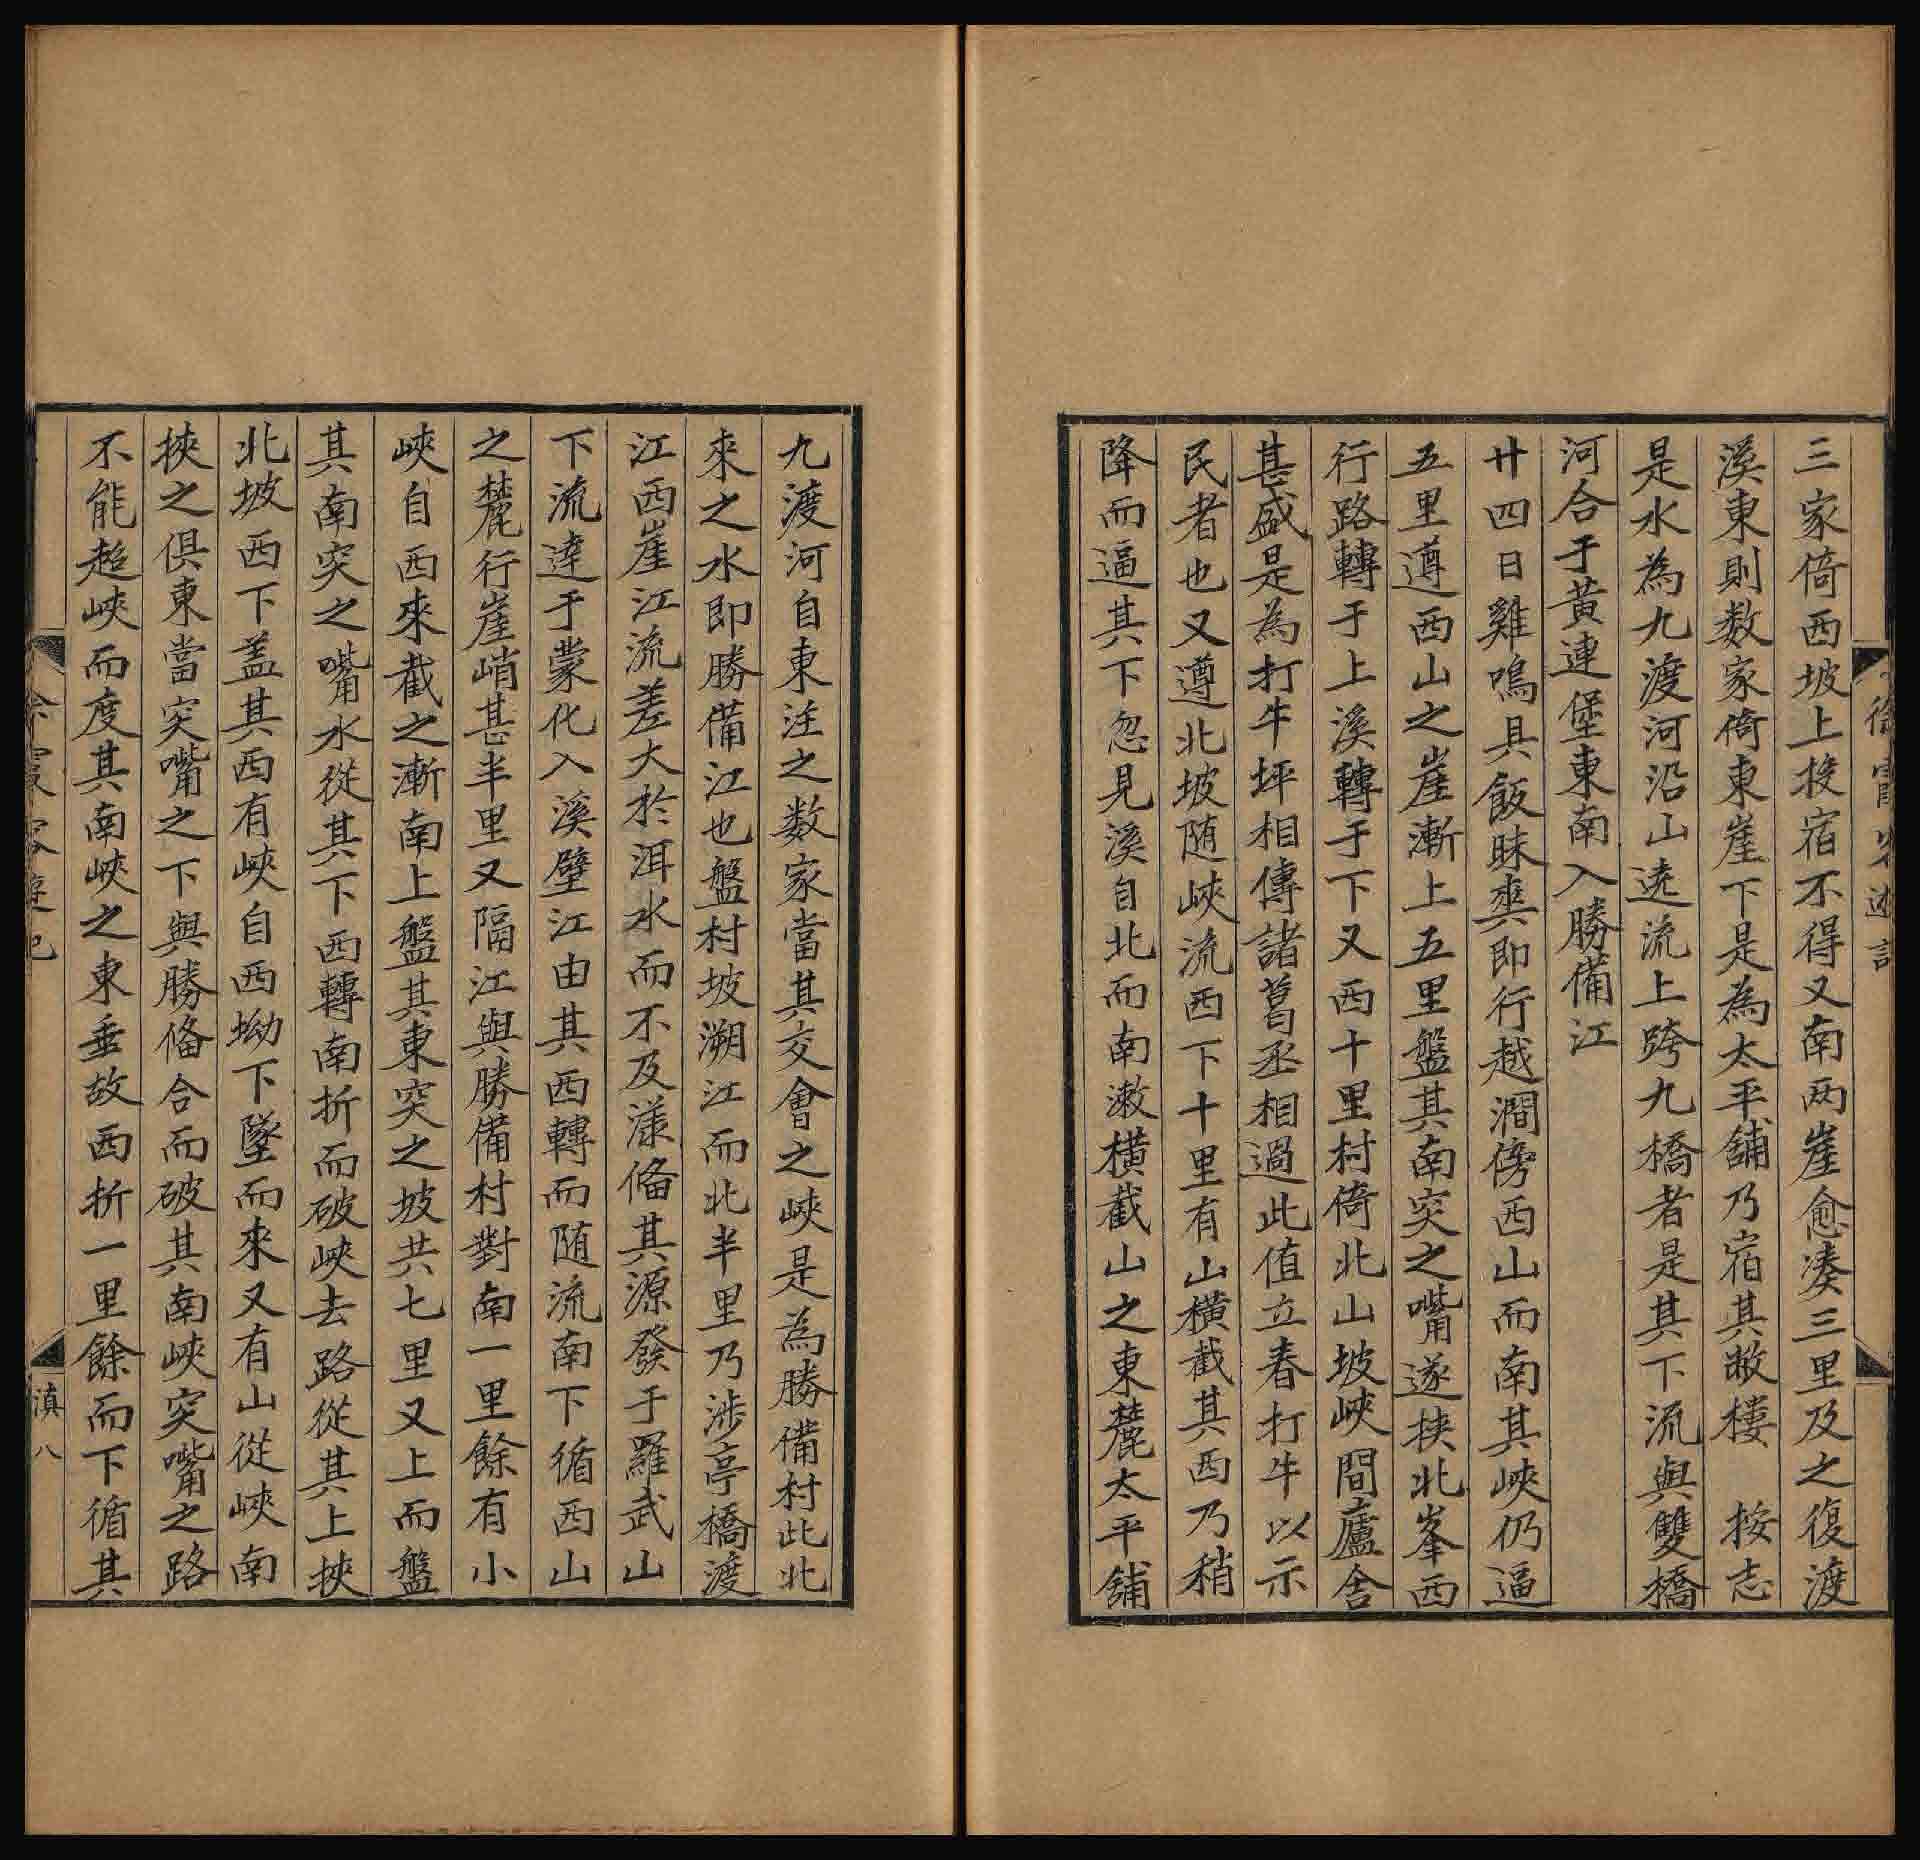 三家倚西坡上投宿不得又南两崖愈凑三里及之復渡
溪東則数家倚東崖下是為太平舖乃宿其敝樓　按志
是水為九渡河沿山遶流上跨九橋者是其下流與雙橋
河合于黃連堡東南入勝備江
廿四日雞鳴具飯昧爽即行越澗傍西山而南其峽仍逼
五里遵西山之崖漸上五里盤其南突之嘴遂挾北峯西
行路轉于上溪轉于下又西十里村倚北山坡峽間廬舍
甚盛是為打牛坪相傳諸葛丞相過此值立春打牛以示
民者也又遵北坡随峽流西下十里有山橫截其西乃稍
降而逼其下忽見溪自北而南漱橫截山之東麓太平舖
九渡河自東注之数家當其交會之峽是為勝備村此北
來之水即勝備江也盤村坡溯江而北半里乃涉亭橋渡
江西崖江流差大於洱水而不及漾俻其源發于羅武山
下流達于蒙化入溪壁江由其西轉而随流南下循西山
之麓行崖峭甚半里又隔江與勝備村對南一里餘有小
峽自西來截之漸南上盤其東突之坡共七里又上而盤
其南突之嘴水從其下西轉南折而破峽去路從其上挾
北坡西下盖其西有峽自西坳下墜而來又有山從峽南
挾之俱東當突嘴之下與勝俻合而破其南峽突嘴之路
不能超峽而度其南峽之東垂故西折一里餘而下循其
滇八